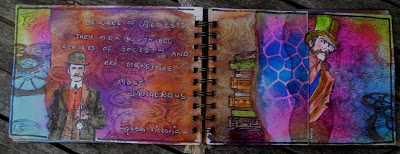 BEWARE OF ARTISTS
THEY MIX WITH ALL
CLASSES OF SOCIETY AND
ARE THEREFORE
MOST
DANGEROUS
Queen Victoria